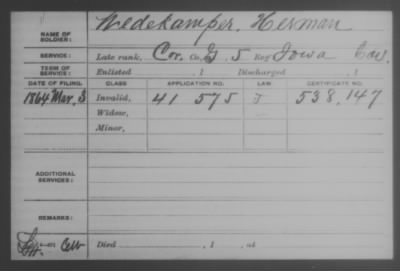 NAME OF SOLDIER: Wedekamper, Herman
SERVICE: Late rank, Cor. Co. G. 5 Reg Iowa Cav.
TERM OF SERVICE: Enlisted , 1 Discharged , 1
DATE OF FILING. CLASS APPLICATION NO. LAW CERTIFICATE NO.
1864 Mar. 3 Invalid, 41 575 J 538,147
Widow,
Minor,
ADDITIONAL SERVICES:
REMARKS:
Died , 1 , at